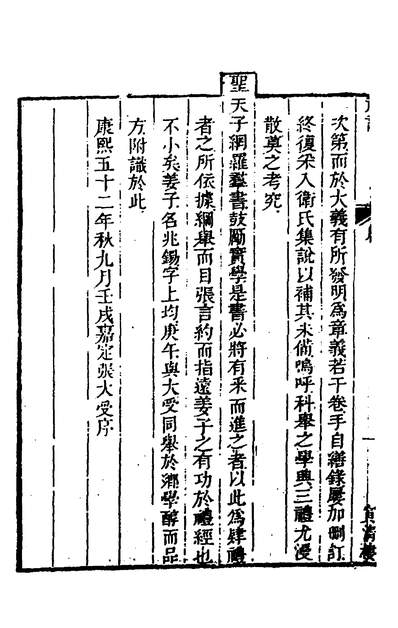 次第而於大義有所發明為章義若干卷手自繕錄屢加刪訂
終復采入衛氏集說以補其未備嗚呼科舉之學興三禮尤漫
散莫之考究
聖天子網羅羣書鼓勵實學是書必將有采而進之者以此為肄禮
者之所依據綱舉而目張言約而指遠姜子之有功於禮經也
不小矣姜子名兆錫字上均庚午與大受同舉於鄉學醇而品
方附識於此
康熙五十二年秋九月壬戌嘉定張大受序